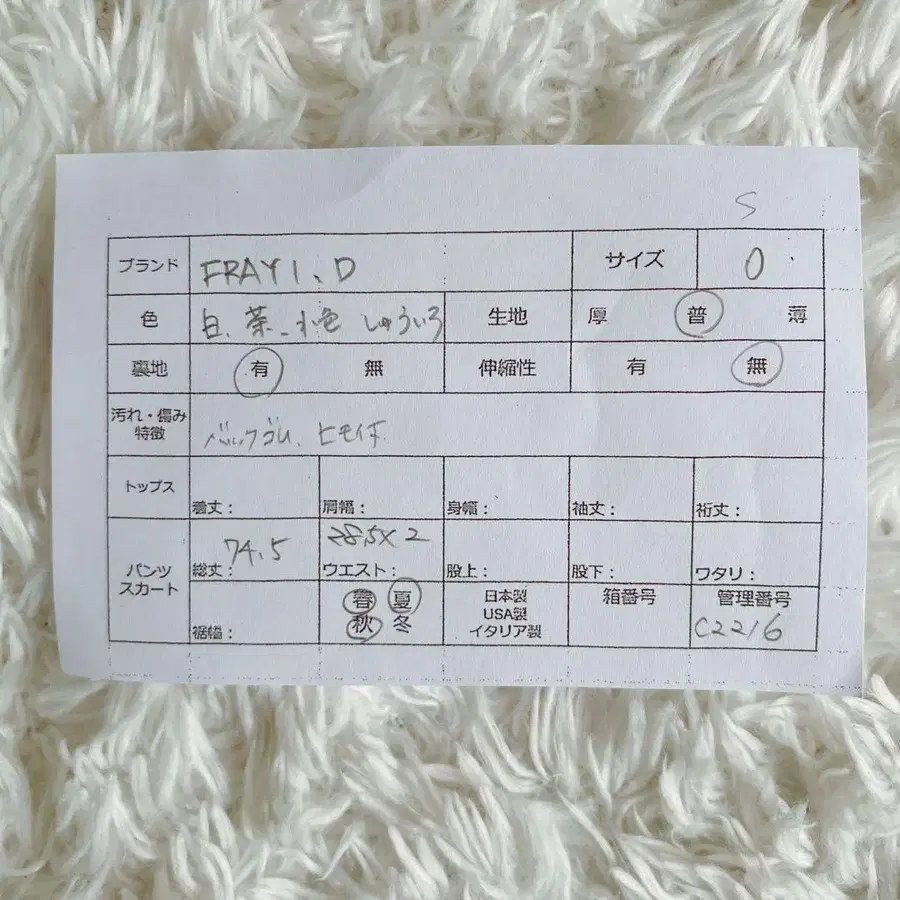 S
ブランド FRAY I、D サイズ 0
色 白、茶、水色 しゅういろ 生地 厚 普 薄
裏地 有 無 伸縮性 有 無
汚れ・傷み
特徴 バックゴム、ヒモ付
トップス 着丈： 肩幅： 身幅： 袖丈： 裄丈：
パンツ
スカート 総丈： 74.5 ウエスト： 28.5×2 股上： 股下： ワタリ：
裾幅： 春 夏
秋 冬
日本製
USA製
イタリア製
箱番号
管理番号
C2216